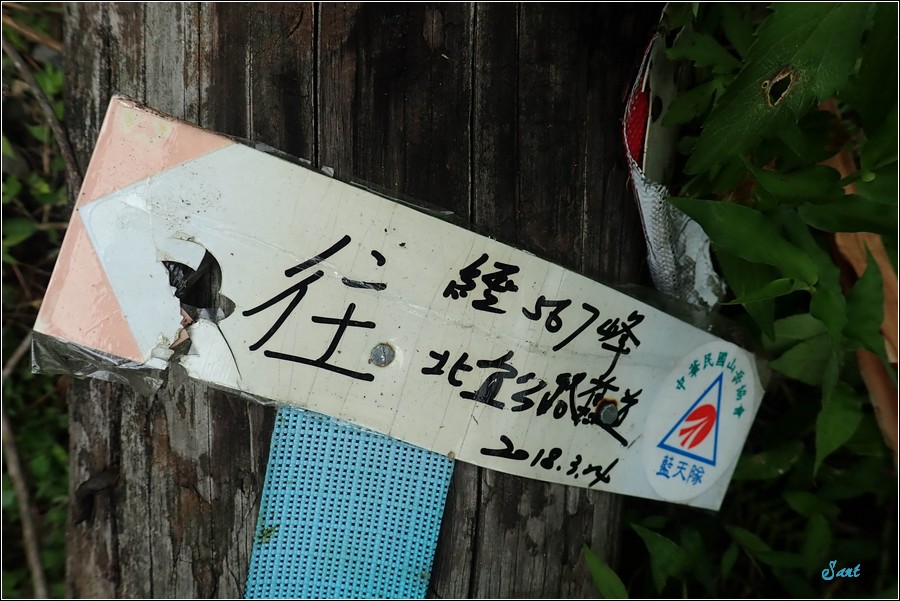 往
經567峰
北宜公路
2018.3.24
中華民國山岳協會
藍天隊
Sant